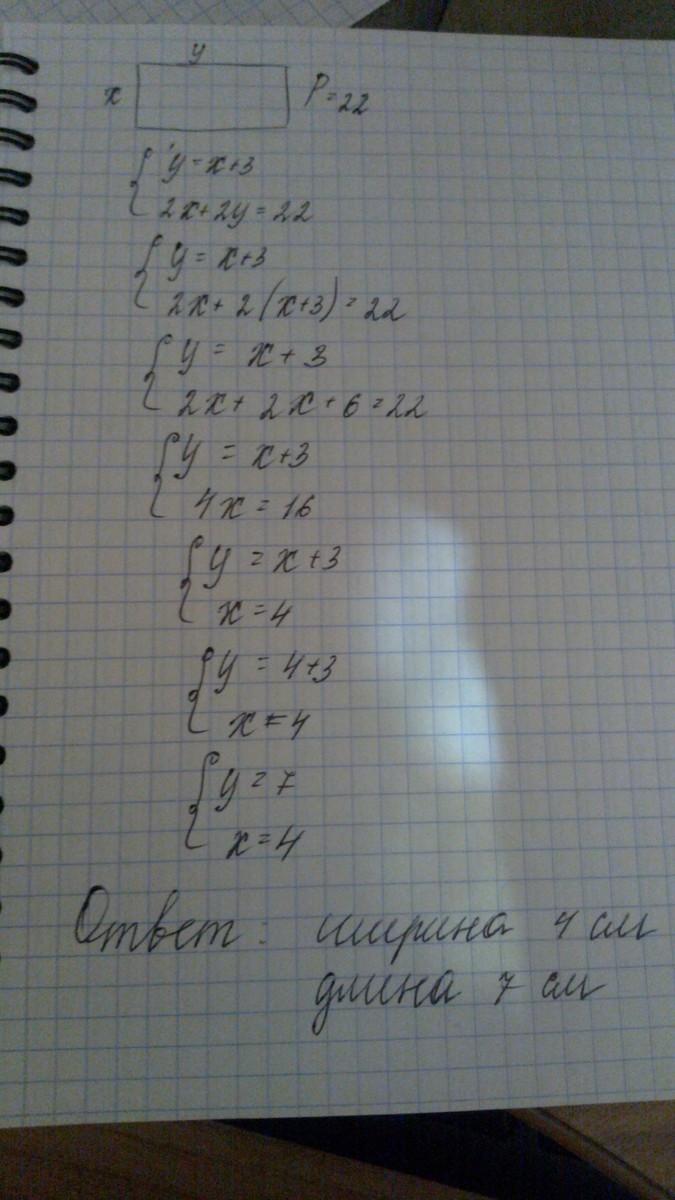 y
x P=22
y=x+3
2x+2y=22
y=x+3
2x+2(x+3)=22
y=x+3
2x+2x+6=22
y=x+3
4x=16
y=x+3
x=4
y=4+3
x=4
y=7
x=4
Ответ: ширина 4 см
длина 7 см